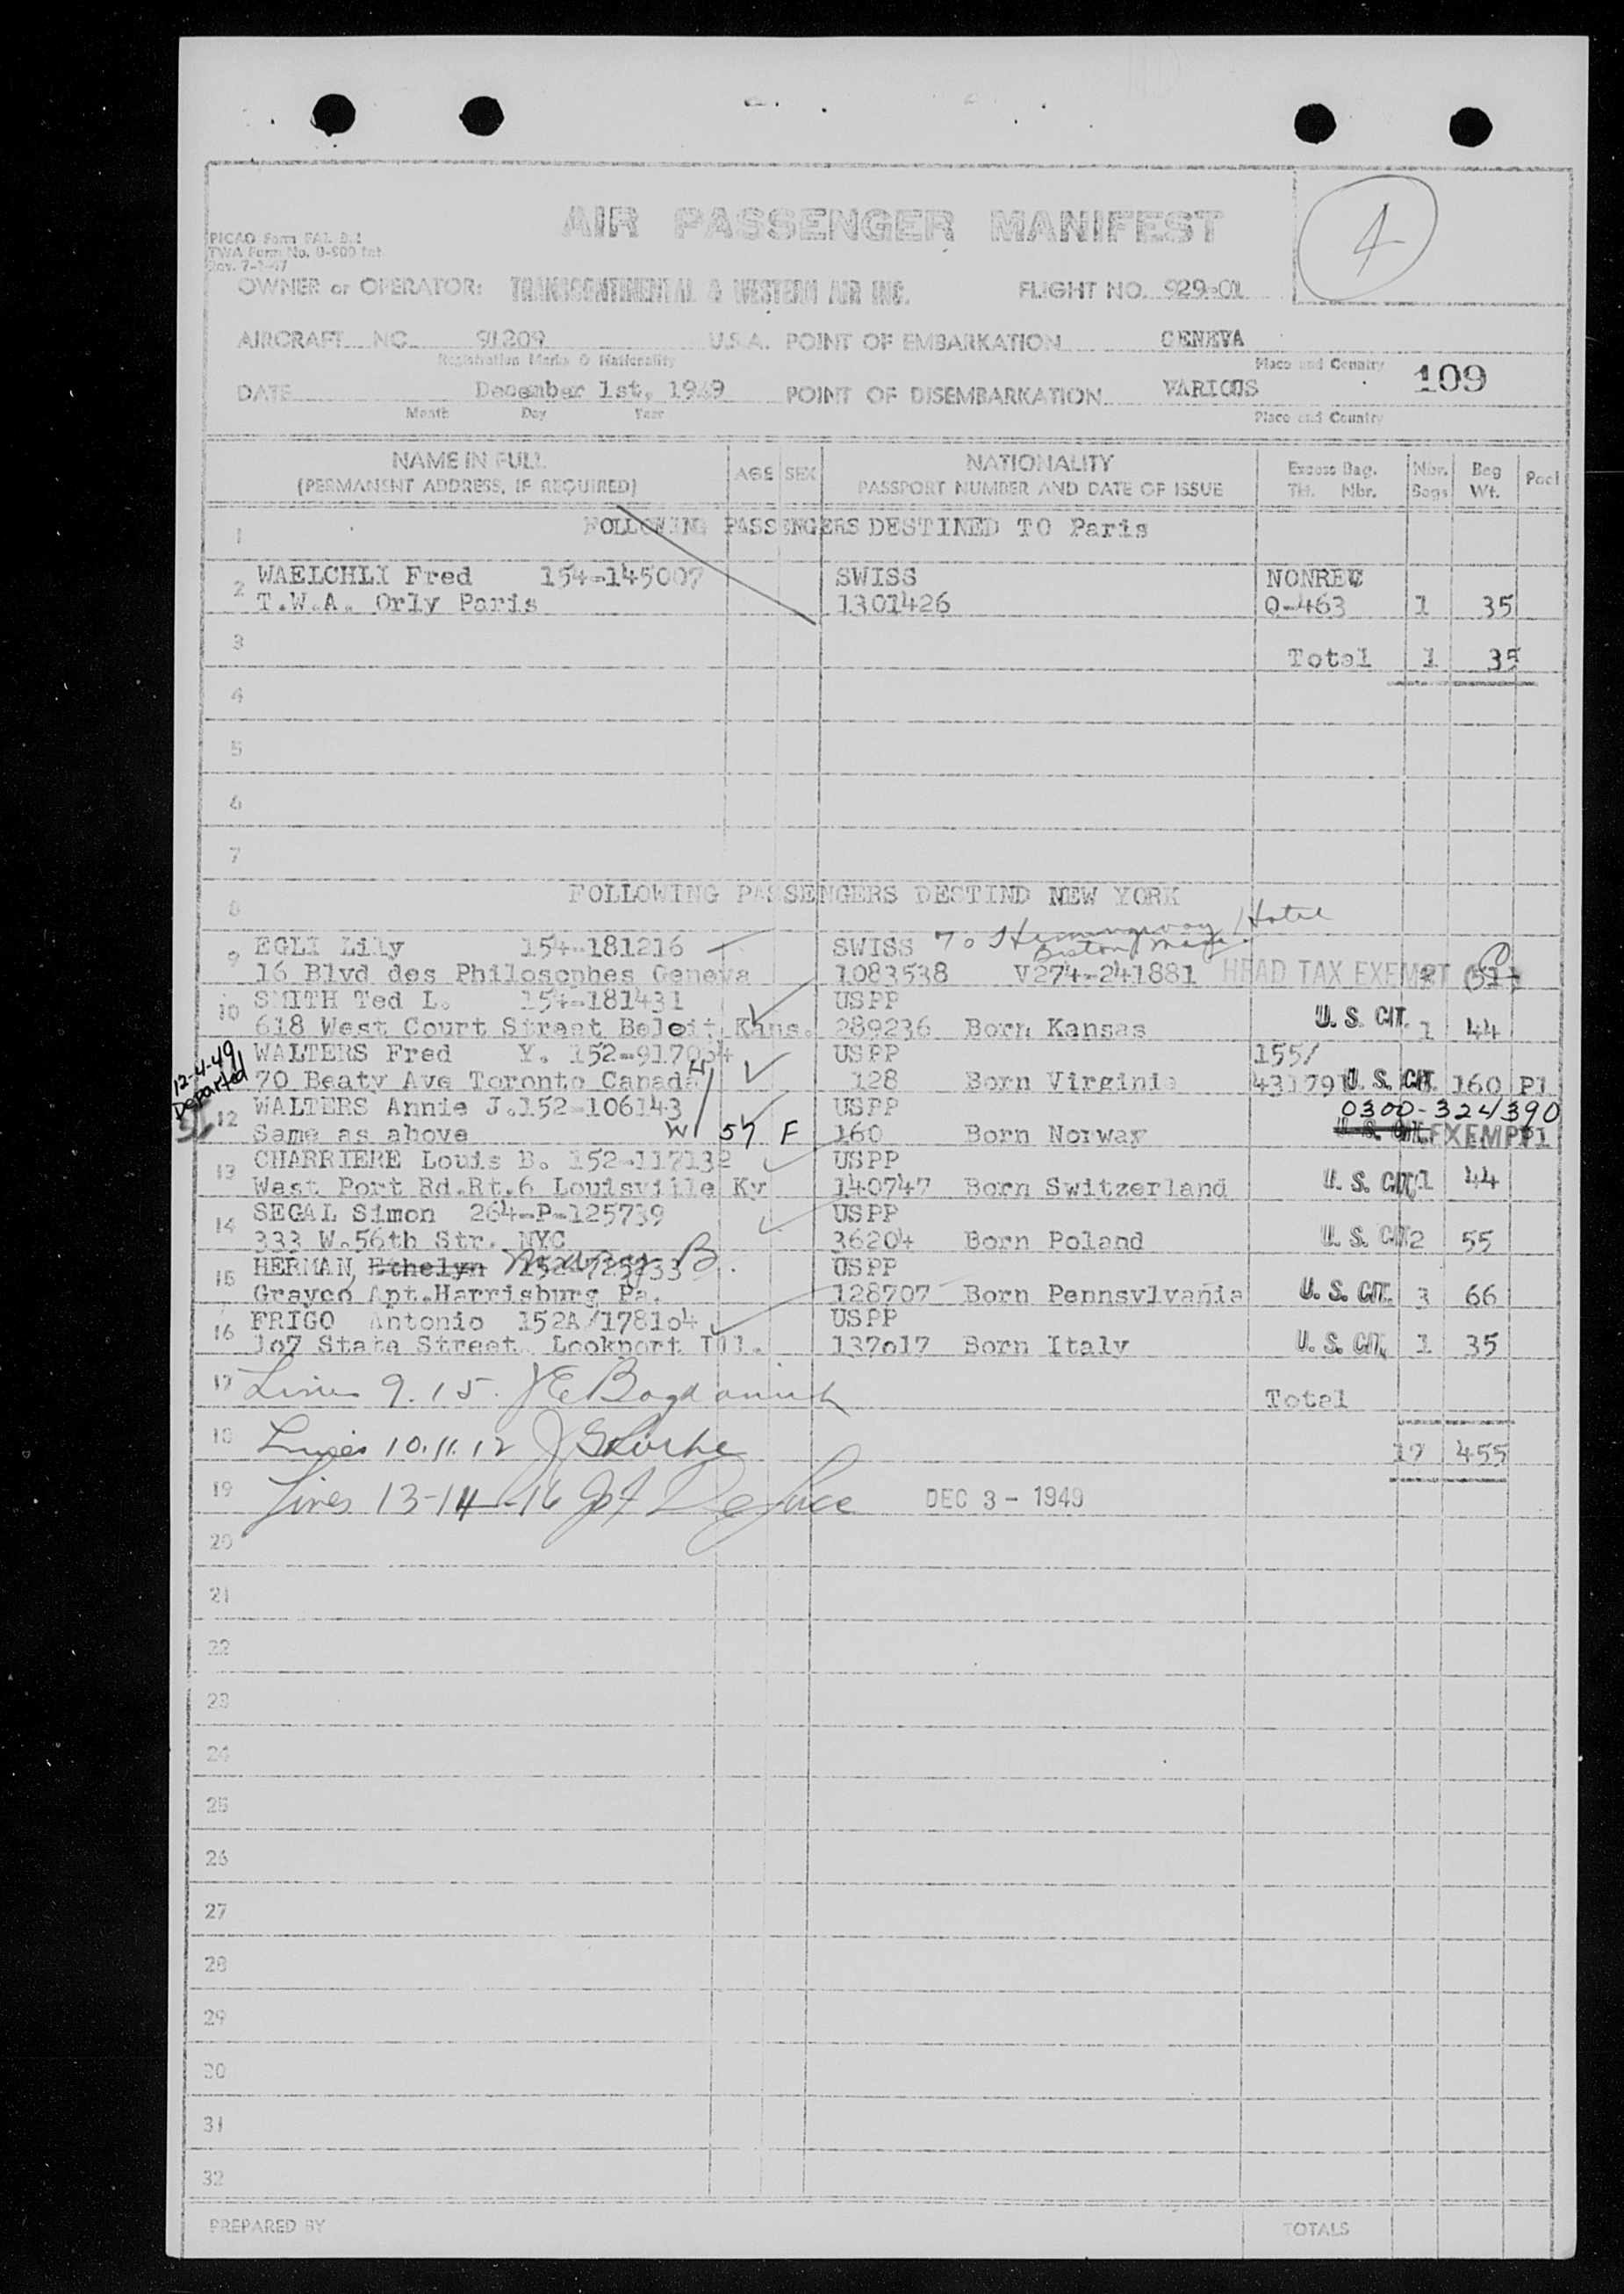 AIR PASSENGER MANIFEST
4
PICAO Form FAL
TWA Form No. 0-800 Int
OWNER or OPERATOR: TRANSCONTINENTAL & WESTERN AIR INC. FLIGHT NO. 929-01
AIRCRAFT NC 91209 U.S.A. POINT OF EMBARKATION GENEVA
Registration Marks & Nationality Place and Country
109
DATE December 1st, 1949 POINT OF DISEMBARKATION VARIOUS
Month Day Year Place and Country
NAME IN FULL AGE SEX NATIONALITY Excess Bag. Nbr. Bag Pool
(PERMANENT ADDRESS, IF REQUIRED) PASSPORT NUMBER AND DATE OF ISSUE Tkt. Nbr. Bags Wt.
1 FOLLOWING PASSENGERS DESTINED TO Paris
2 WAELCHLI Fred 154-145007 SWISS NONREV
T.W.A. Orly Paris 1301426 Q-463 1 35
3 Total 1 35
4
5
6
7
8 FOLLOWING PASSENGERS DESTIND NEW YORK
To Hemingway Hotel
9 EGLI Lily 154-181216 SWISS Boston Mass.
16 Blvd des Philosophes Geneva 1083538 V274-241881 HEAD TAX EXEMPT
10 SMITH Ted L. 154-181431 USPP
618 West Court Street Beloit Kans. 289236 Born Kansas U. S. CIT. 1 44
12-4-49 Departed
WALTERS Fred Y. 152-917054 USPP 155/
70 Beaty Ave Toronto Canada 128 Born Virginia U. S. CIT. 160 Pl
12 WALTERS Annie J. 152-106143 USPP 0300-324390
Same as above W 57 F 160 Born Norway U. S. CIT. EXEMPT
13 CHARRIERE Louis B. 152-117132 USPP
West Port Rd.Rt.6 Louisville Ky 140747 Born Switzerland U. S. CIT. 1 44
14 SEGAL Simon 264-P-125739 USPP
333 W.56th Str. NYC 36204 Born Poland U. S. CIT. 2 55
15 HERMAN, Ethelyn B. USPP
Grayco Apt.Harrisburg Pa. 128707 Born Pennsylvania U. S. CIT. 3 66
16 FRIGO Antonio 152A/178104 USPP
107 State Street Lockport Ill. 137017 Born Italy U. S. CIT. 1 35
17 Lines 9. 15. Total
18 Lines 10. 11. 12 17 455
19 Lines 13-14-16 DEC 3 - 1949
20
21
22
23
24
25
26
27
28
29
30
31
32
PREPARED BY TOTALS